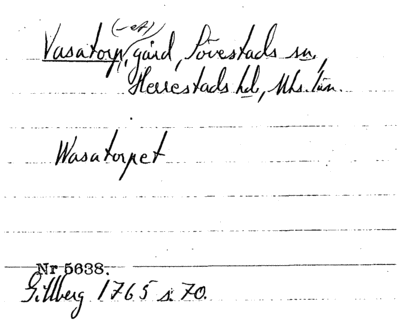 (-et)
Vasatorp, gård, Sövestads sn,
Herrestads hd, Mhs. län.
Wasatorpet
Nr 5638.
Gillberg 1765 s. 70.